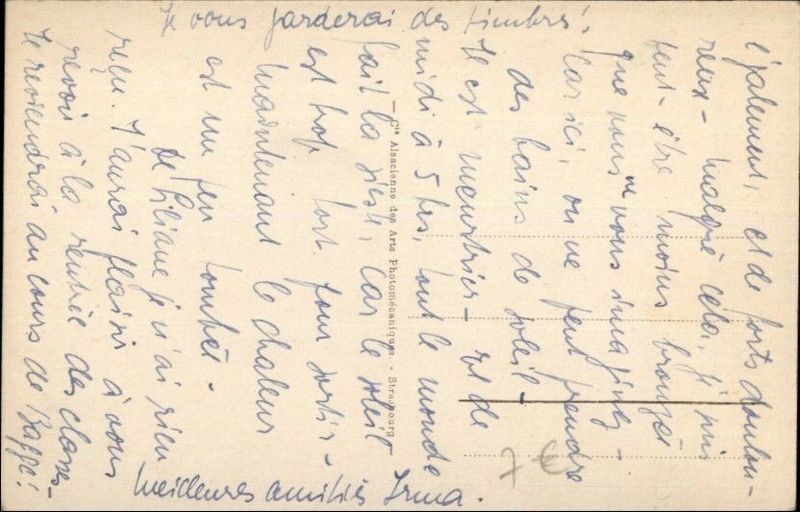 également, et de forts doulou-
reux - malgré cela, je suis
peut-être moins bronzée
que vous ne vous imaginez -
Car ici, on ne peut prendre
des bains de soleil -
Il est meurtrier - et de
midi à 5 hrs, tout le monde
fait la sieste, car le soleil
est trop fort pour sortir -
Maintenant la chaleur
est un peu tombée -
De Liliane je n'ai rien
reçu. J'aurai plaisir à vous
revoir à la rentrée des classes -
Je reviendrai au cours de
Je vous garderai des timbres !
Meilleures amitiés Irma.
— Cie Alsacienne des Arts Photomécaniques - Strasbourg —
7 €